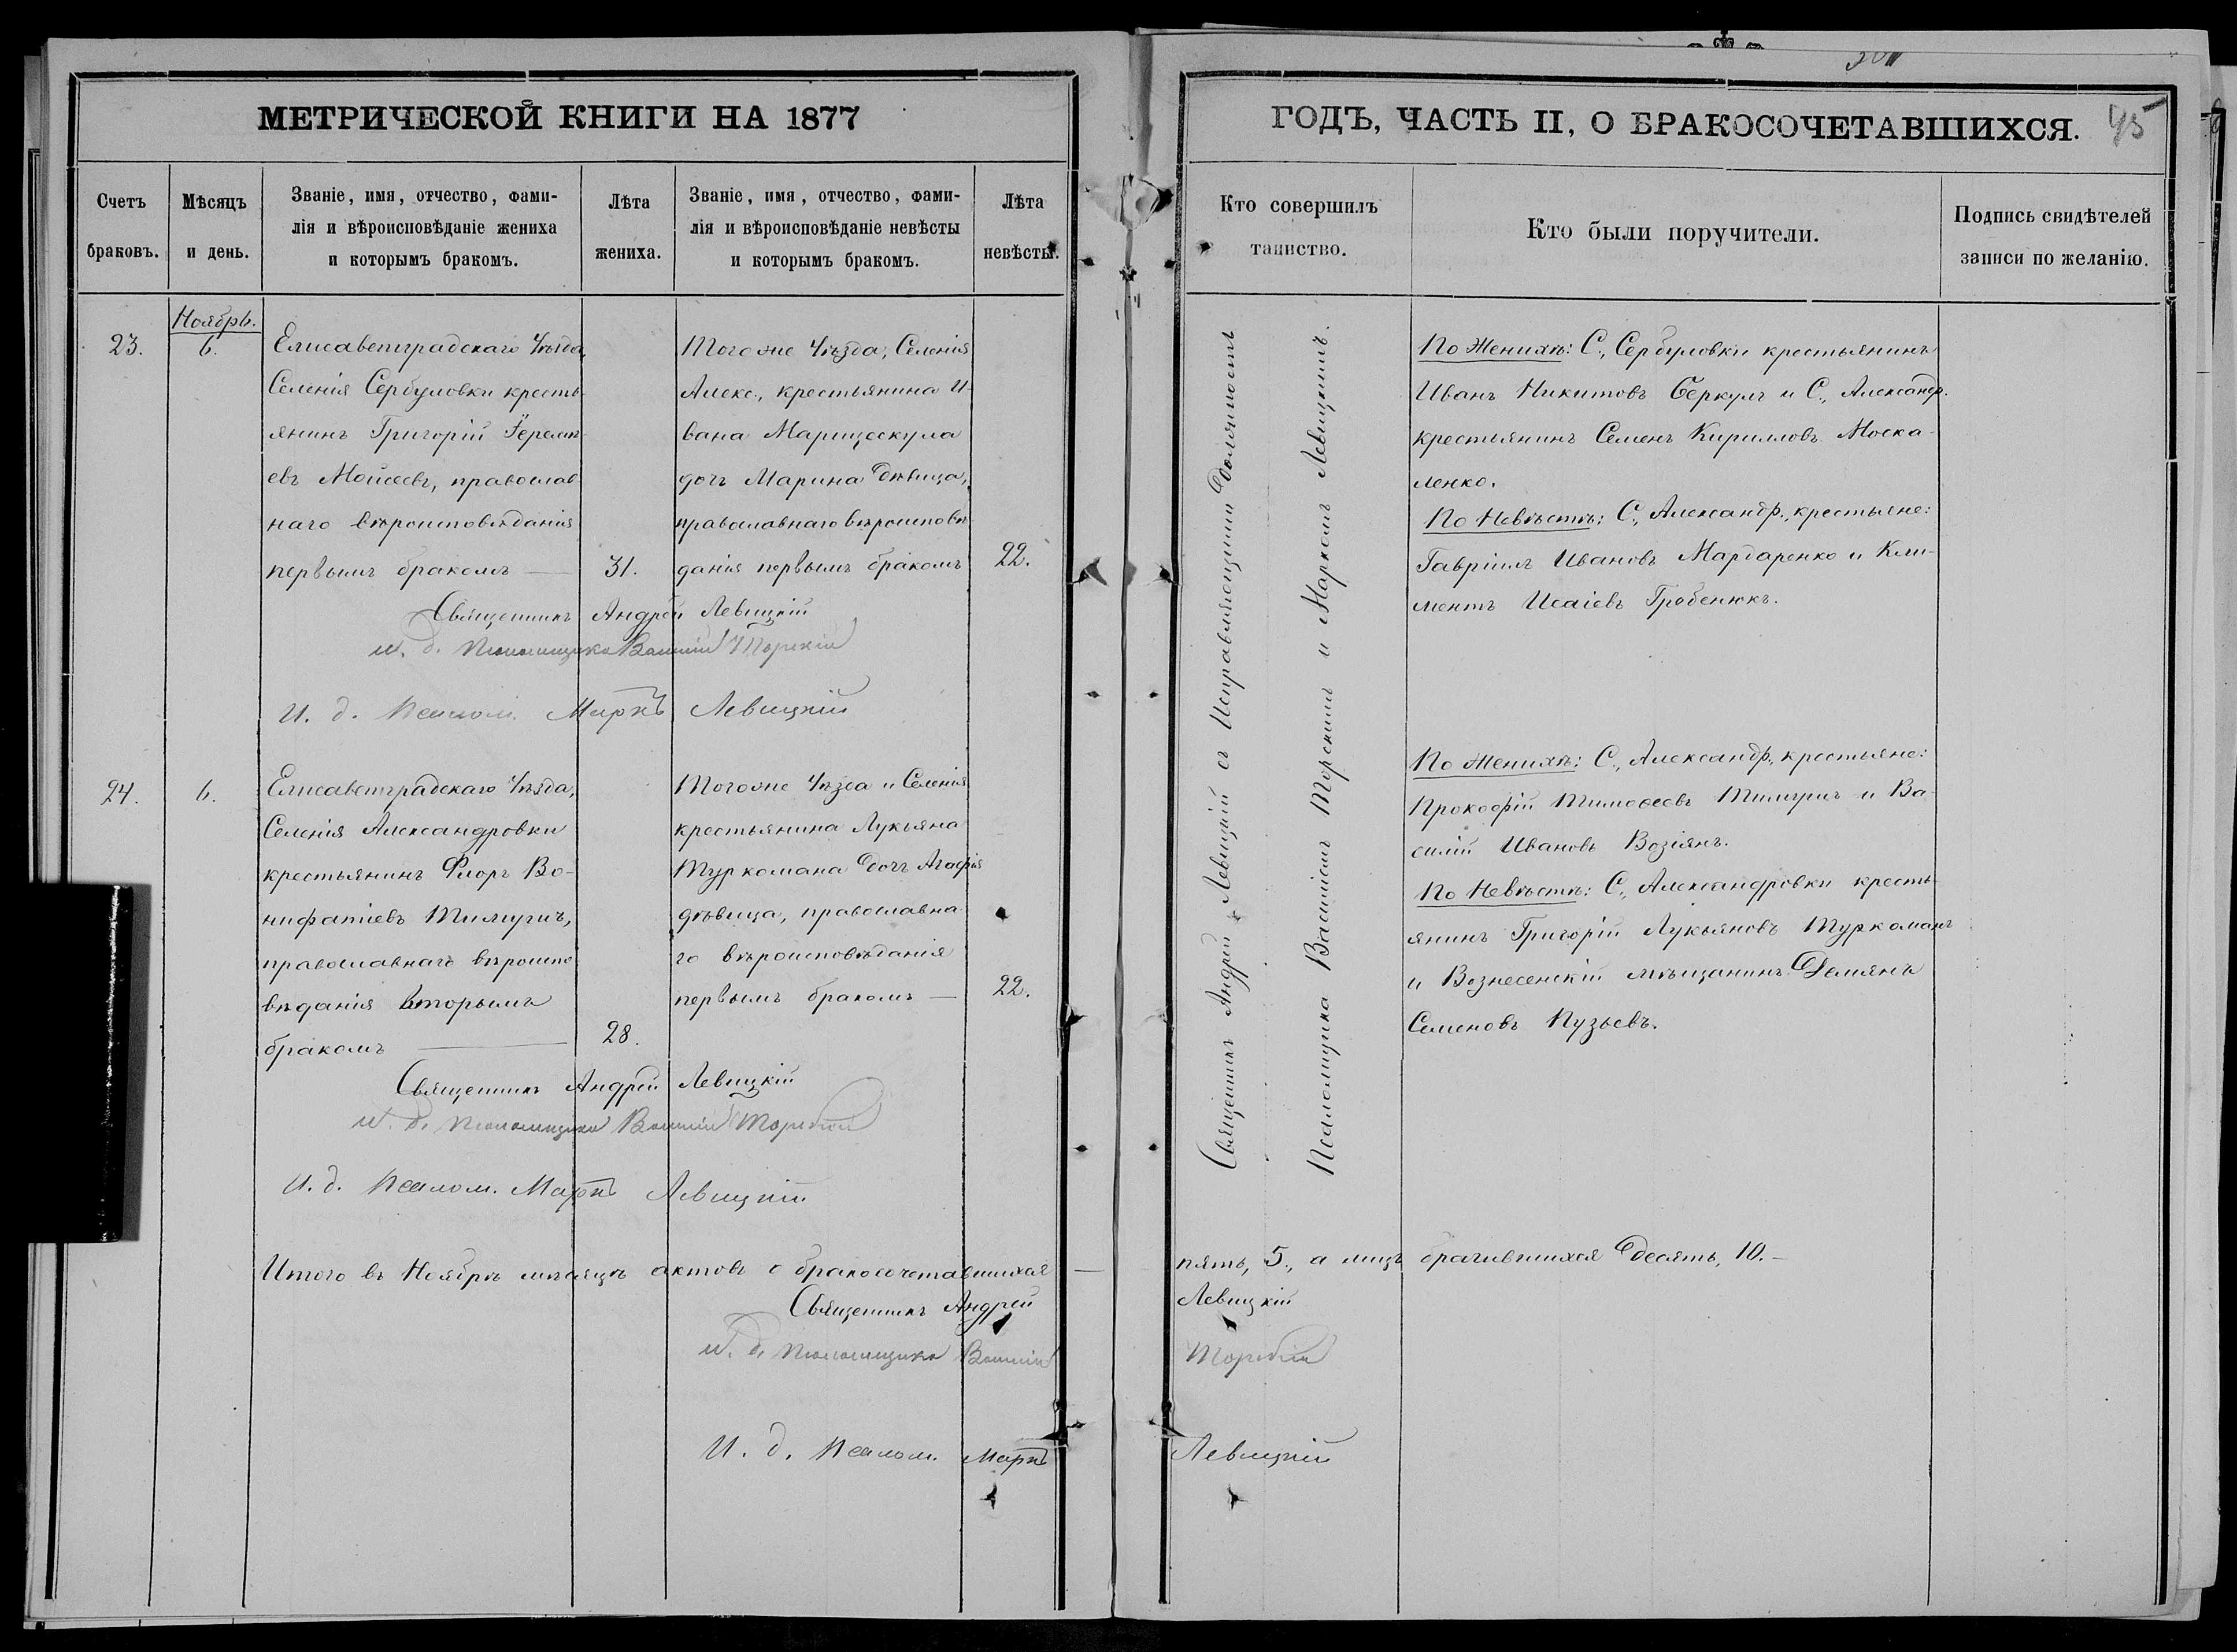 МЕТРИЧЕСКОЙ КНИГИ НА 1877
Счетъ браковъ.
Мѣсяцъ и день.
Званіе, имя, отчество, фами-
лія и вѣроисповѣданіе жениха
и которымъ бракомъ.
Лѣта жениха.
Званіе, имя, отчество, фами-
лія и вѣроисповѣданіе невѣсты
и которымъ бракомъ.
Лѣта невѣсты.
Ноябрь.
23.
6.
Елисаветградскаго Уѣзда,
Селенія Сербуловки кресть-
янинъ Григорій
евъ Моисеевъ, православ
наго вѣроисповѣданія
первымъ бракомъ —
31.
Тогоже Уѣзда, Селенія
Алекс., крестьянина И-
вана Марицескула
дочь Марина дѣвица,
православнаго вѣроисповѣ
данія первымъ бракомъ
22.
Священникъ Андрей Левицкій
и. д. Псаломщика Василій Торскій
И. д. Псалом. Маркъ Левицкій
24.
6.
Елисаветградскаго Уѣзда,
Селенія Александровки
крестьянинъ Флоръ Во-
нифатіевъ Тимуричъ,
православнаго вѣроиспо
вѣданія вторымъ
бракомъ —
28.
Тогоже Уѣзда и Селенія
крестьянина Лукьяна
Туркомана дочь Агафія
дѣвица, православна
го вѣроисповѣданія
первымъ бракомъ —
22.
Священникъ Андрей Левицкій
и. д. Псаломщика Василій Торскій
И. д. Псалом. Маркъ Левицкій
Итого въ Ноябрѣ мѣсяцѣ актовъ о бракосочетавшихся — пять, 5., а лицъ брачившихся десять, 10. —
Священникъ Андрей Левицкій
и. д. Псаломщика Василій Торскій
И. д. Псалом. Маркъ Левицкій
ГОДЪ, ЧАСТЬ II, О БРАКОСОЧЕТАВШИХСЯ.
45
Кто совершилъ
таинство.
Кто были поручители.
Подпись свидѣтелей
записи по желанію.
Священникъ Андрей Левицкій съ Исправляющими Должность
Псаломщика Василіемъ Торскимъ и Маркомъ Левицкимъ.
По Женихѣ: С., Сербуловки крестьянинъ
Иванъ Никитовъ Беркулъ и С., Александр.
крестьянинъ Семенъ Кирилловъ Моска-
ленко.
По Невѣстѣ: С., Александр., крестьяне:
Гавріилъ Ивановъ Мардаренко и Кли-
ментъ Исаіевъ Гробенюкъ.
По Женихѣ: С., Александр., крестьяне:
Прокофій Тимофеевъ Тимуричъ и Ва-
силій Ивановъ Возіянъ.
По Невѣстѣ: С., Александровки кресть-
янинъ Григорій Лукьяновъ Туркоманъ
и Вознесенскій мѣщанинъ Демянъ
Семеновъ Пузьевъ.